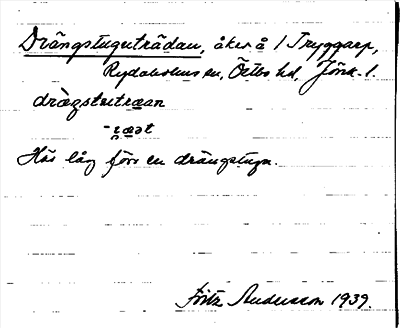 Drängstuguträdan, åker å 1 Tryggarp,
Rydaholms sn, Östbo hd, Jönk. l.
drägstutræan
Här låg förr en drängstuga.
Fritz Andersson 1939.